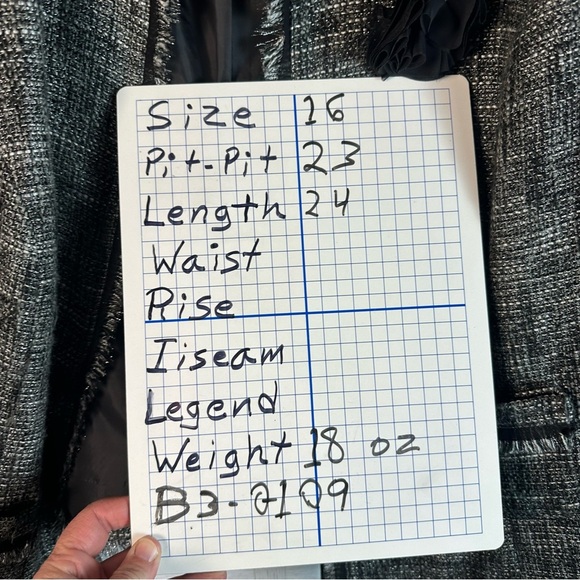 Size 16
Pit-Pit 23
Length 24
Waist
Rise
Iiseam
Legend
Weight 18 oz
B3-0109